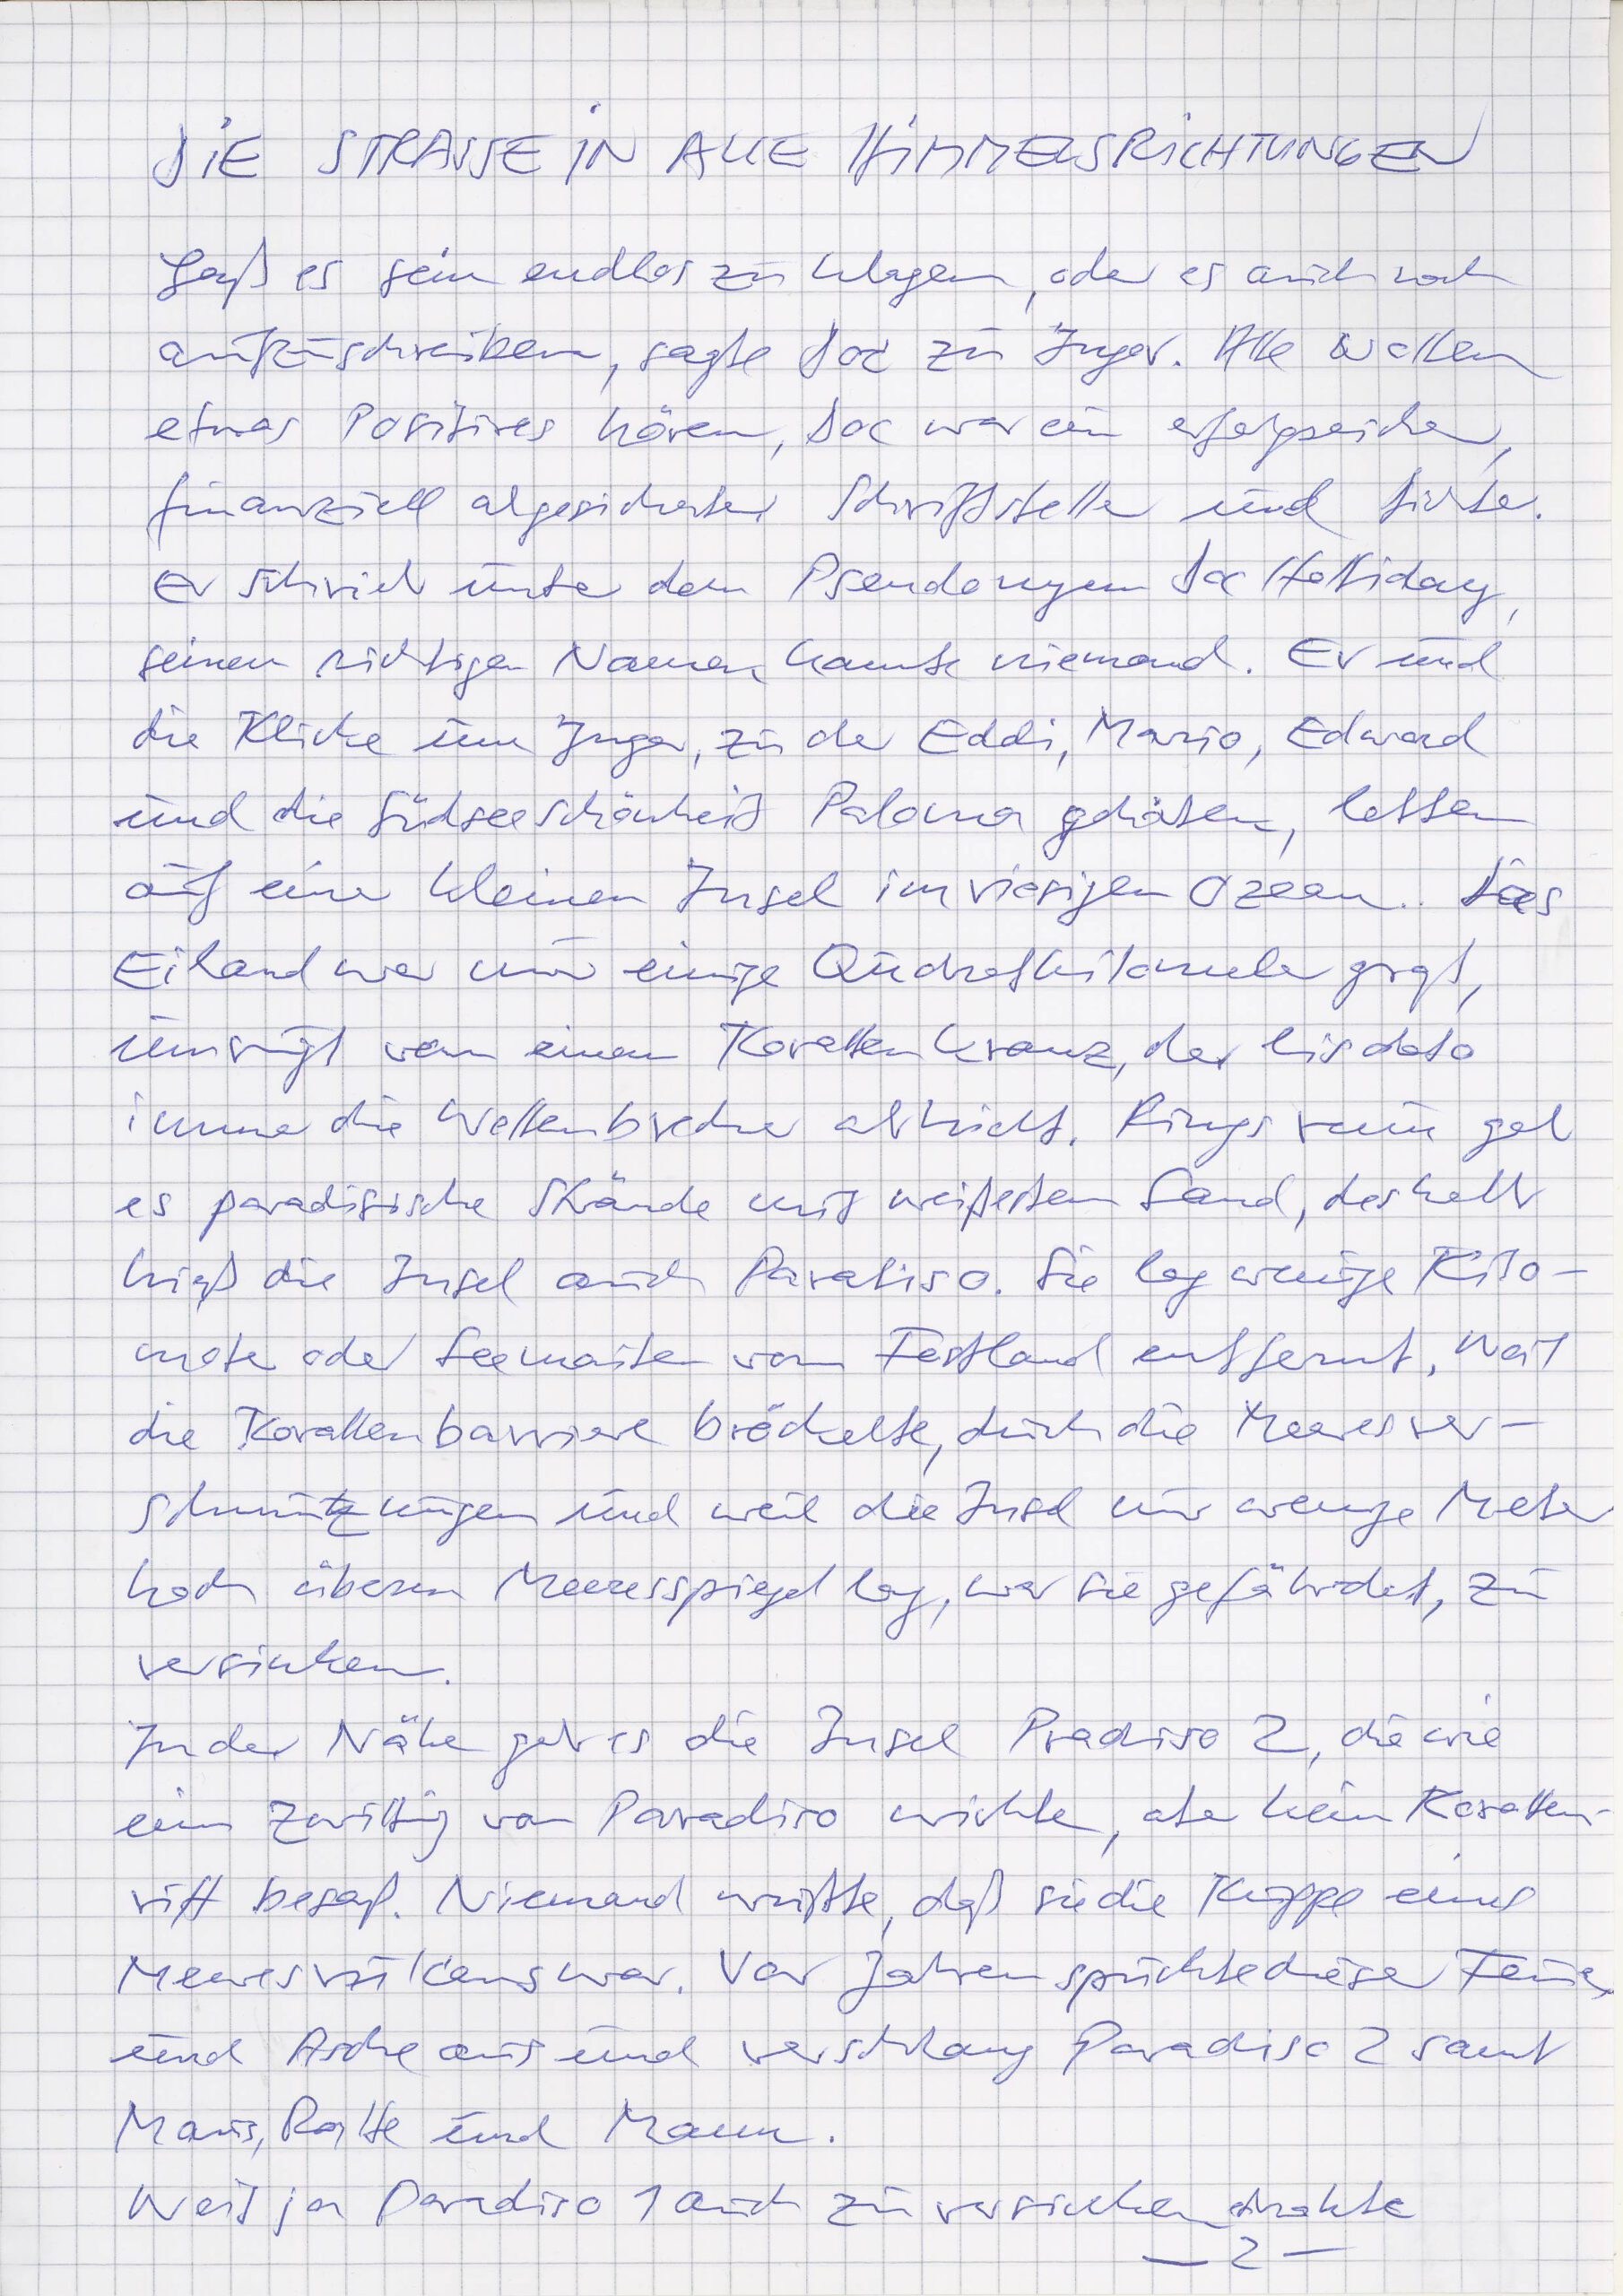 DIE STRASSE IN ALLE HIMMELSRICHTUNGEN
Laß es sein endlos zu klagen, oder es auch noch
aufzuschreiben, sagte Doc zu Inger. Alle wollen
etwas Positives hören, Doc war ein erfolgreicher,
finanziell abgesicherter Schriftsteller und Dichter.
Er schrieb unter dem Pseudonym Doc Holliday,
seinen richtigen Namen kannte niemand. Er und
die Klicke um Inger, zu der Eddi, Mario, Edward
und die Südseeschönheit Paloma gehörten, lebten
auf einer kleinen Insel im riesigen Ozean.. Das
Eiland war nur einige Qudratkilometer groß,
umringt von einem Korallenkranz, der bis dato
immer die Wellenbrecher abhielt. Rings rum gab
es paradisische Strände mit weißestem Sand, deshalb
hieß die Insel auch Paradiso. Sie lag wenige Kilo-
meter oder Seemeilen vom Festland entfernt. Weil
die Korallenbarriere bröckelte, durch die Meeresver-
schmutzungen und weil die Insel nur wenige Meter
hoch überm Meeresspiegel lag, war sie gefährdet, zu
versinken.
In der Nähe gab es die Insel Pradiso 2, die wie
ein Zwilling von Paradiso wirkte, aber kein Korallen-
riff besaß. Niemand wußte, daß sie die Kuppe eines
Meeresvulkans war. Vor Jahren spuckte dieser Feuer
und Asche aus und verschlang Paradiso 2 samt
Maus, Ratte und Mann.
Weil ja Paradiso 1 auch zu versinken drohte
— 2 —